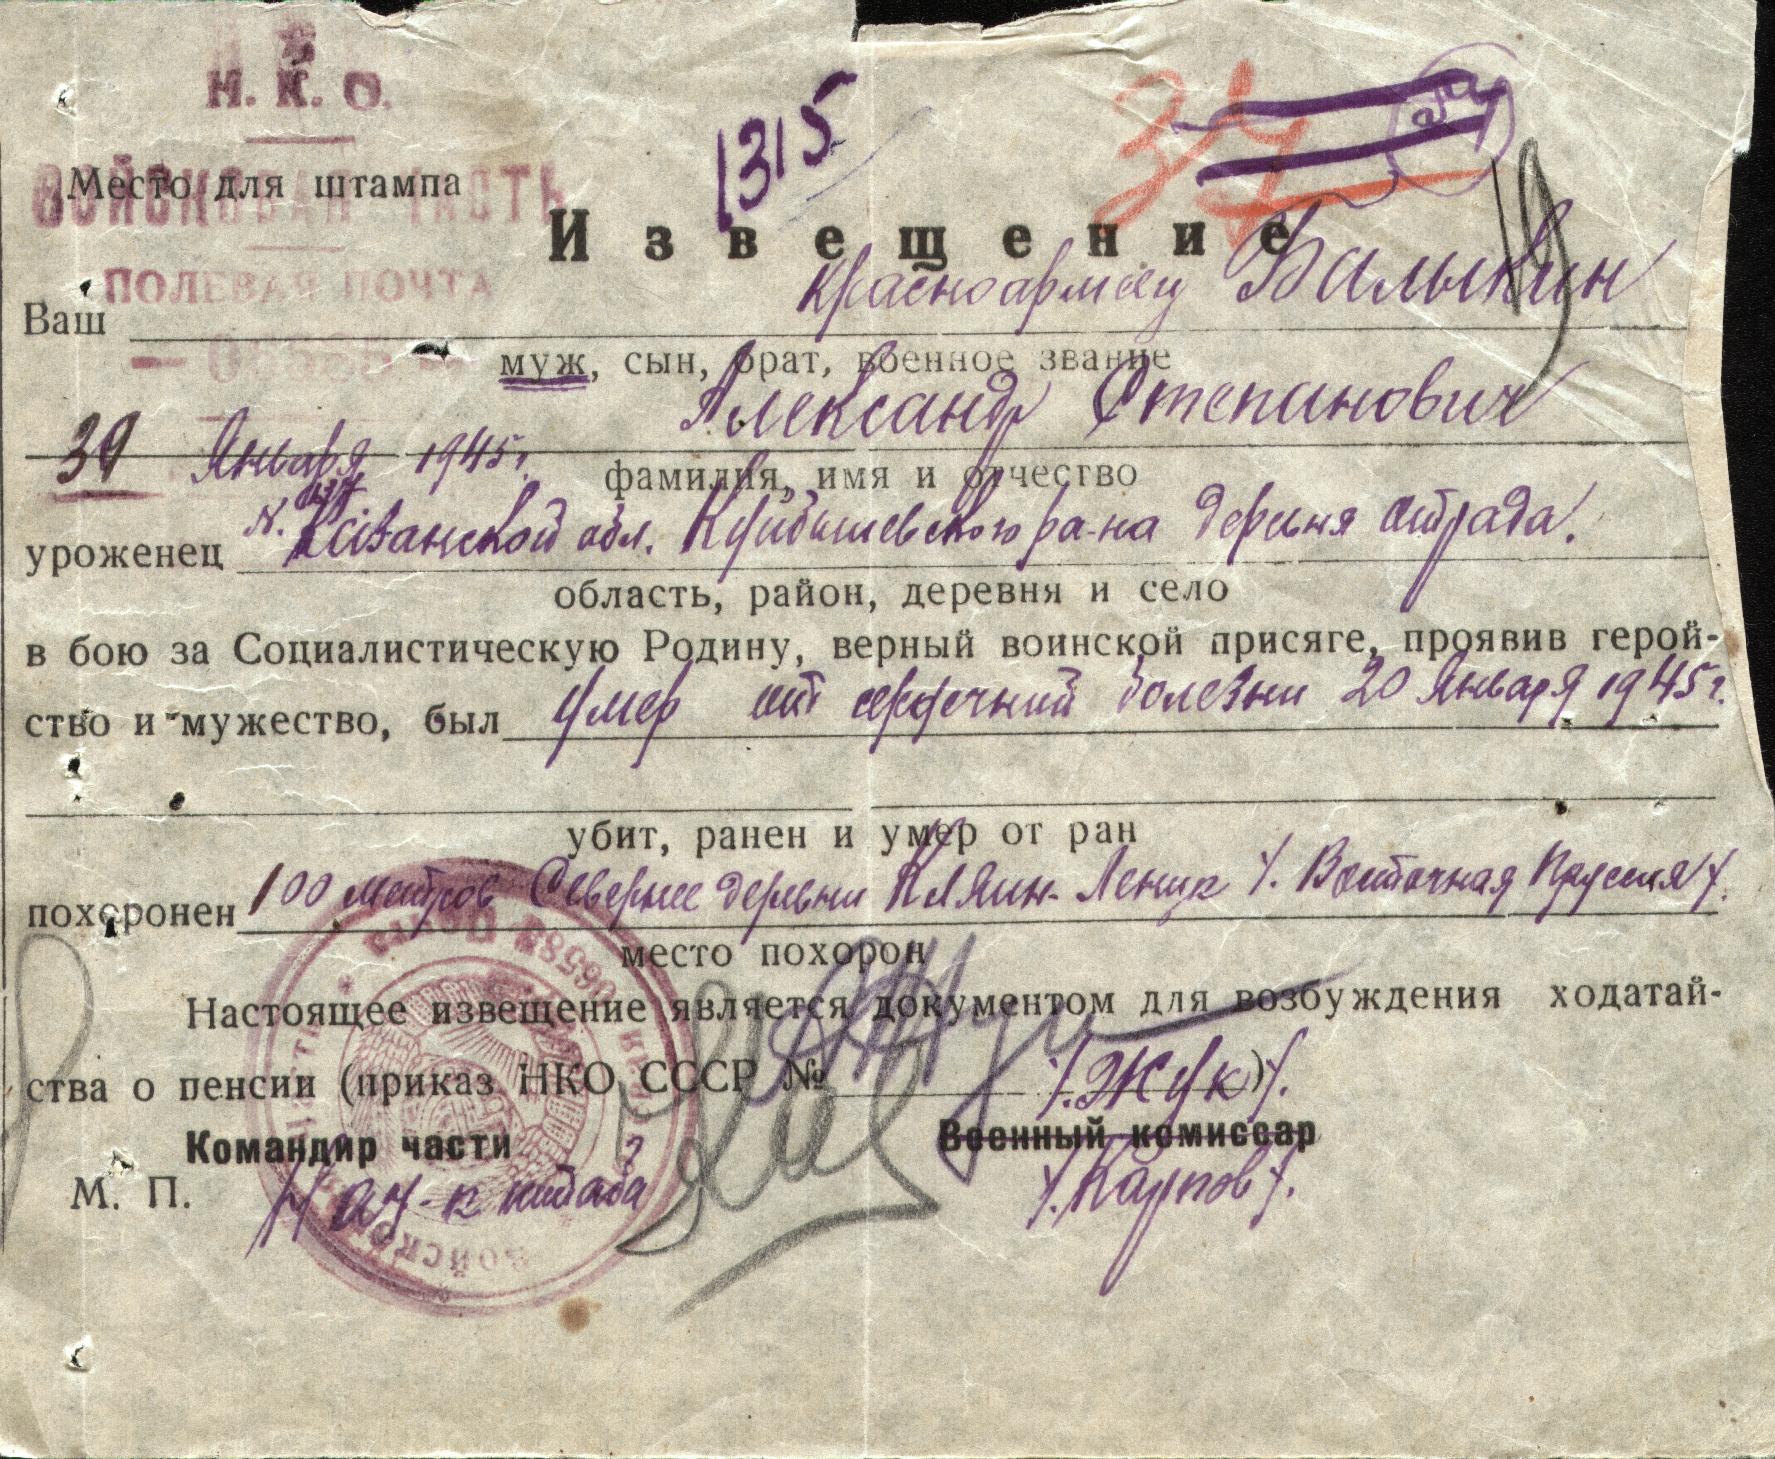 Н. К. О.
1315
37
Место для штампа
ВОЙСКОВАЯ ЧАСТЬ
Извещение
ПОЛЕВАЯ ПОЧТА
красноармеец Балыкин
Ваш
муж, сын, брат, военное звание
Александр Степанович
Января 1945г.
фамилия, имя и отчество
уроженец Казанской обл. Куйбышевского ра-на деревня отрада.
область, район, деревня и село
в бою за Социалистическую Родину, верный воинской присяге, проявив герой-
ство и мужество, был умер от сердечний болезни 20 Января 1945г.
убит, ранен и умер от ран
похоронен 100 метров Севернее деревни Кляин-Ленцк /. Восточная Пруссия /.
место похорон
Настоящее извещение является документом для возбуждения ходатай-
ства о пенсии (приказ НКО СССР № )
/. Жук /.
Командир части Военный комиссар
М. П. Нач-к штаба /. Карпов /.